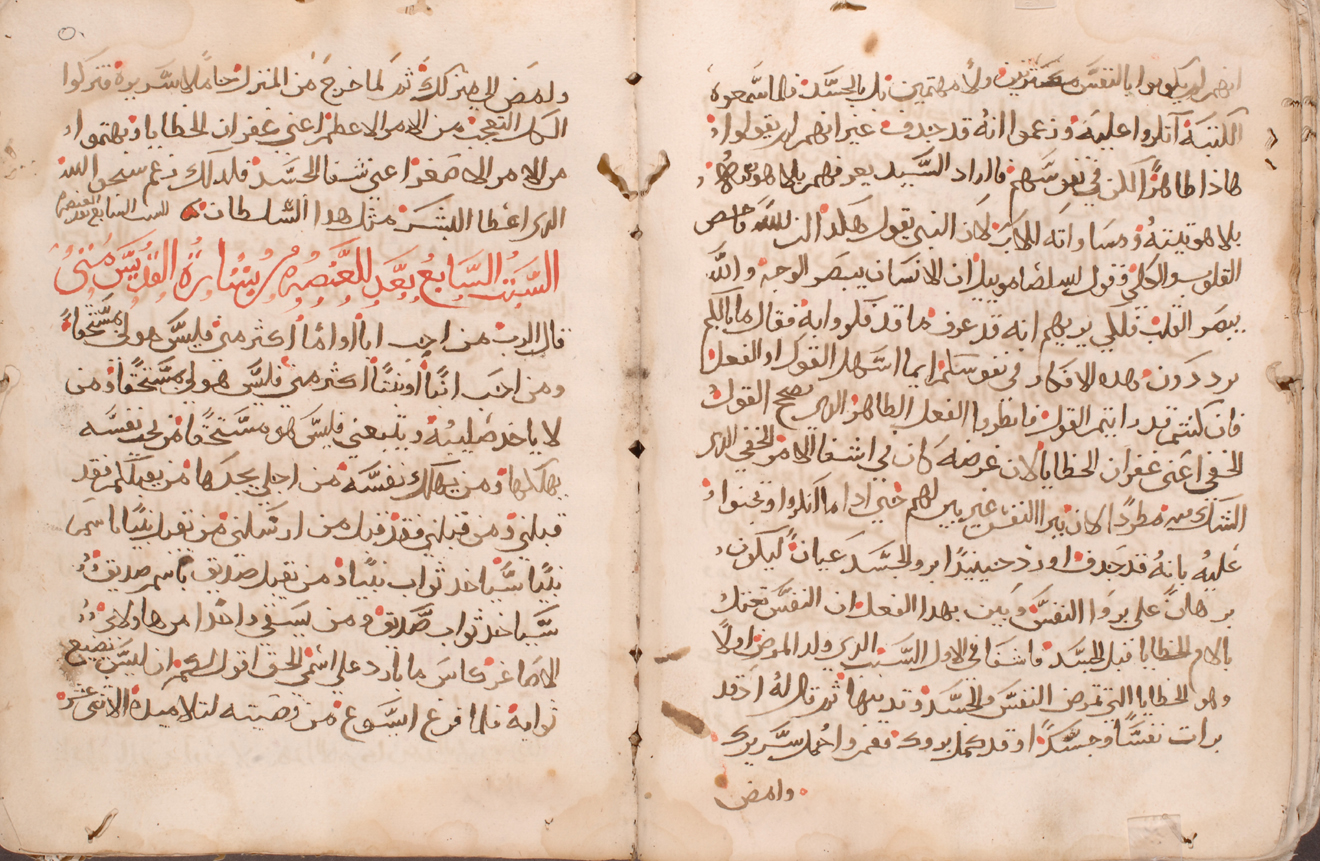 انهم لم يكونوا بالنفس معتنين ولا مهتمين بل بالجسد فلما سمعوه
الكتبة انكروا عليه وزعموا انه قد جدف غير انهم لم يقولوا
هاذا ظاهرًا لكن في نفوسهم فاراد السيد يعرفهم بلاهوته
بلاهوتيته ومساواته للاب لان النبي يقول هكذا الله فاحص
القلوب والكلى وقول لصاموييل ان الانسان يبصر الوجه والله
يبصر القلب فلكي يريهم انه قد عرف ما قد فكروا به فقال ما بالكم
ترددون هذه الافكار في نفوسكم ايما اسهل القول او الفعل
فان كنتم قد رايتم القول فانظروا الفعل الظاهر الذي يصحح القول
الخفي اعني غفران الخطايا لان غرضه كان في اشفا الامر الخفي الذي
الشك فيه مطردًا كان يبرا النفس غير يبين لهم حتى اذا ما انكروا وتجنوا
عليه بانه قد جدف اورد حينيدًا برو الجسد عيانًا ليكون
برهانًا على بروا النفس وبين بهدا الفعل ان النفس تعتل
بالام الخطايا قبل الجسد فاشفا في الاول السبب الدي ولد المرض اولًا
وهو الخطايا التي تمرض النفس والجسد وتدينها ثم قال له اد قد
برات نفسًا وجسدًا وقد كمل بروك فقم واحمل سريرك
وامض
وامض الى منزلك ثم لما خرج من المنزل حاملًا سريره فتركوا
الكل التعجب من الامر الاعظم اعني غفران الخطايا وبهتموا
من الامر الاصغر اعني شفا الجسد فلدلك نعم سبحوا الله
الدي اعطا البشر مثل هدا السلطان السبت السابع بعد العنصره
السبت السابع بعد العنصره بشارة القديس متى
قال الرب من احب ابًا او امًا اكثر مني فليس هو لي مستحقًا
ومن احب ابنًا او بنتًا اكثر مني فليس هو لي مستحقًا ومن
لا ياخد صليبه ويتبعني فليس هو مستحقًا من يجد نفسه
يهلكها ومن يهلك نفسه من اجلي يجدها من يقبلكم فقد
قبلني ومن قبلني فقد قبل من ارسلني من تقبل نبيًا باسم
نبيًا سياخد ثواب نبيًا ومن تقبل صديق باسم صديق
سياخد ثواب صديق ومن يسقي واحدًا من هاولاء
الاصاغر كاس ما بارد على اسمي الحق اقول لكم ان ليس يضيع
ثوابه فلما افرغ ايسوع من وصيته لتلاميده الاثني عشر